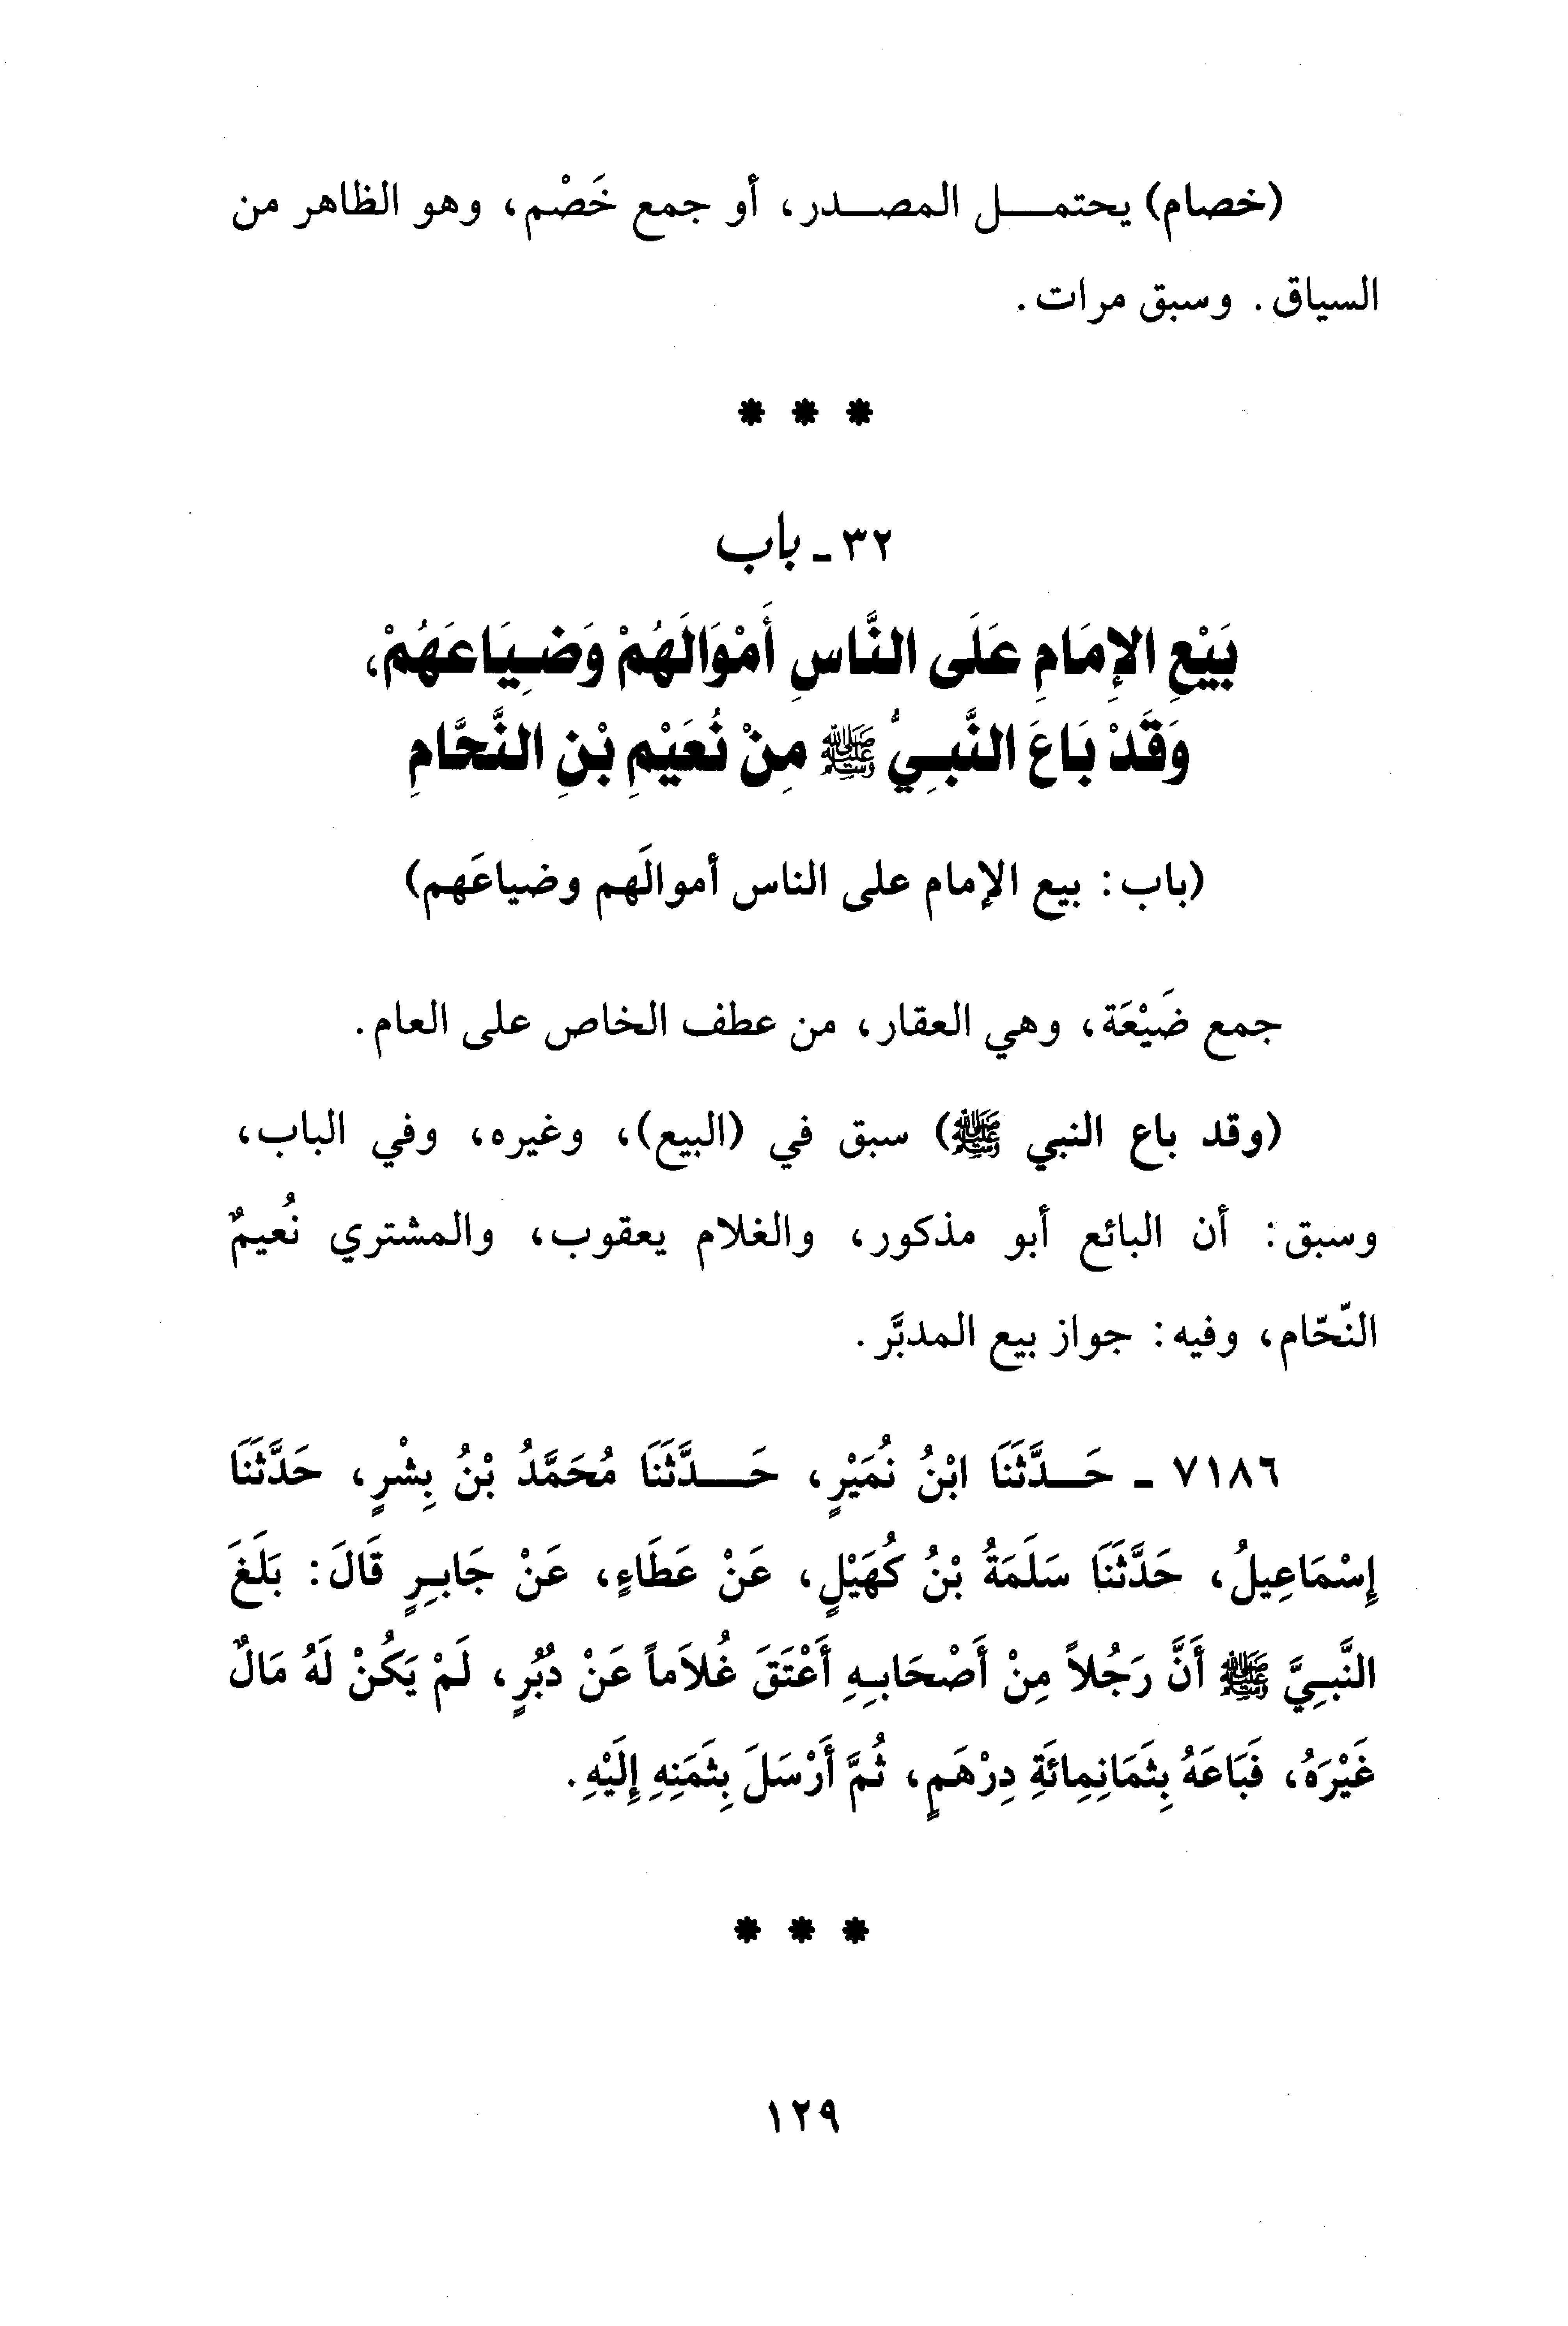 (خصام) يحتمـــل المصـــدر، أو جمع خَصْم، وهو الظاهر من
السياق. وسبق مرات.
* * *
٣٢ - باب
بَيْعِ الإِمَامِ عَلَى النَّاسِ أَمْوَالَهُمْ وَضِيَاعَهُمْ،
وَقَدْ بَاعَ النَّبِيُّ ﷺ مِنْ نُعَيْمِ بْنِ النَّحَّامِ
(باب: بيع الإمام على الناس أموالَهم وضياعَهم)
جمع ضَيْعَة، وهي العقار، من عطف الخاص على العام.
(وقد باع النبي ﷺ) سبق في (البيع)، وغيره، وفي الباب،
وسبق: أن البائع أبو مذكور، والغلام يعقوب، والمشتري نُعيمٌ
النّحّام، وفيه: جواز بيع المدبَّر.
٧١٨٦ - حَـــدَّثَنَا ابْنُ نُمَيْرٍ، حَـــدَّثَنَا مُحَمَّدُ بْنُ بِشْرٍ، حَدَّثَنَا
إِسْمَاعِيلُ، حَدَّثَنَا سَلَمَةُ بْنُ كُهَيْلٍ، عَنْ عَطَاءٍ، عَنْ جَابِرٍ قَالَ: بَلَغَ
النَّبِيَّ ﷺ أَنَّ رَجُلاً مِنْ أَصْحَابِهِ أَعْتَقَ غُلاَماً عَنْ دُبُرٍ، لَمْ يَكُنْ لَهُ مَالٌ
غَيْرَهُ، فَبَاعَهُ بِثَمَانِمِائَةِ دِرْهَمٍ، ثُمَّ أَرْسَلَ بِثَمَنِهِ إِلَيْهِ.
* * *
١٢٩